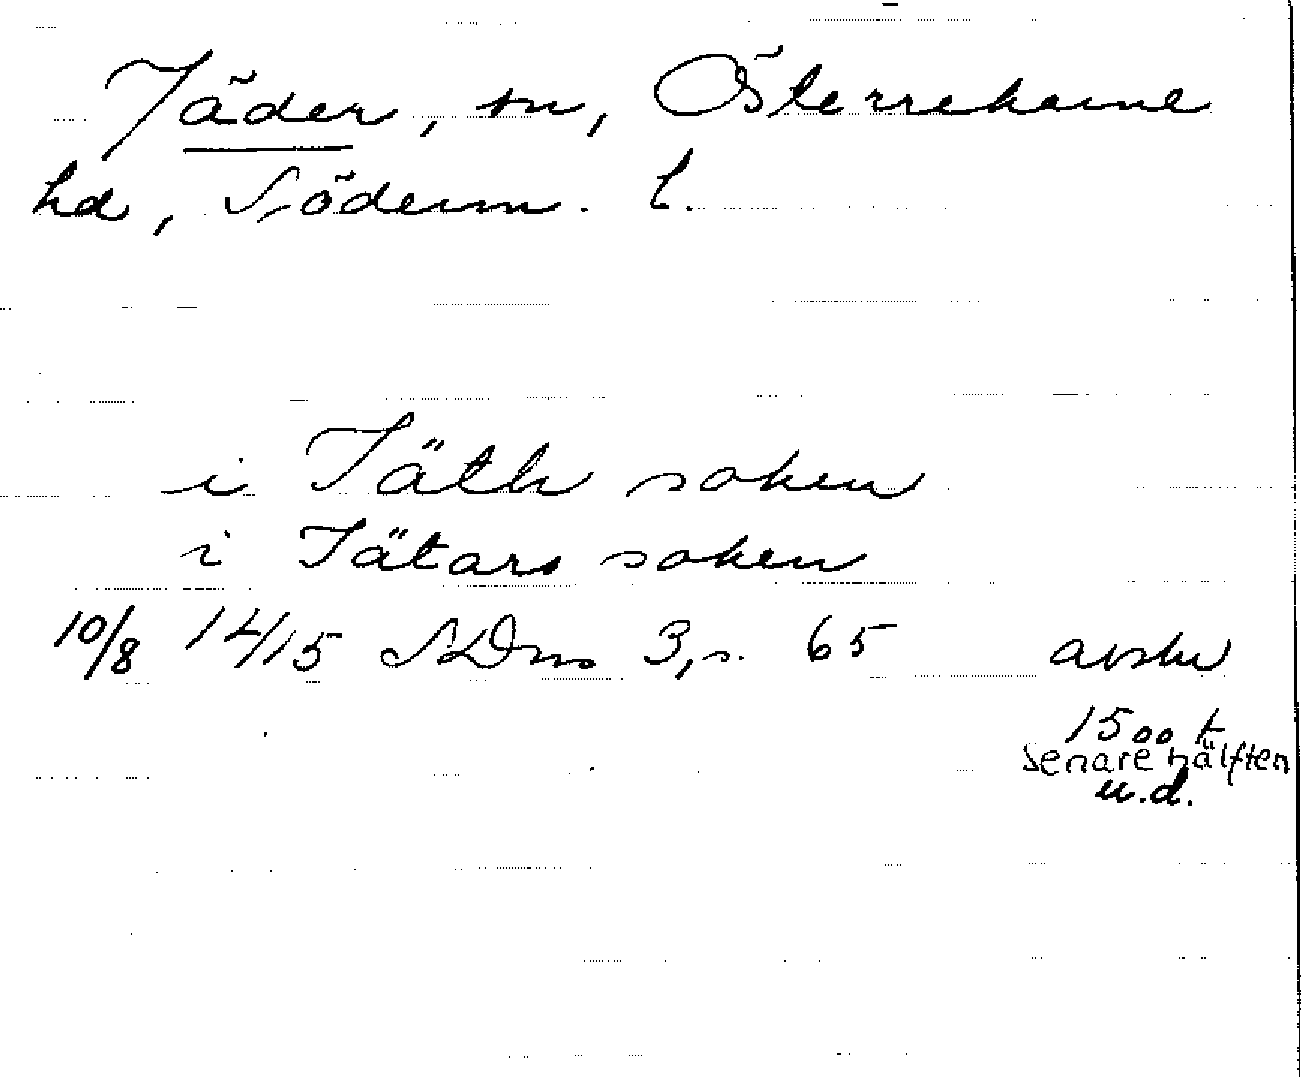 Jäder, sn, Österrekarne
hd, Söderm. l.
i Jäth soken
i Jätars soken
10/8 1415 SDns 3, s. 65 avskr
1500 t
senare hälften
u.d.